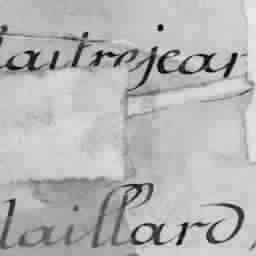 aitrejean
laillard